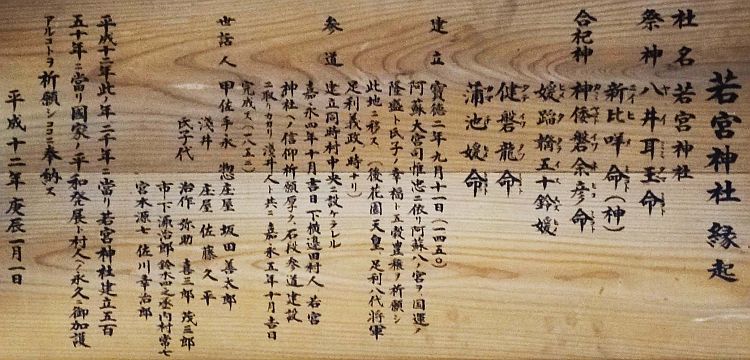 若宮神社 縁起
社名 若宮神社
祭神 八井耳玉命
新比咩命(神)
合祀神 神倭磐余彦命
媛蹈鞴五十鈴媛
健磐龍命
蒲池媛命
建立 寶徳二年九月十一日(一四五〇)
阿蘇大宮司惟忠ニ依リ阿蘇八ノ宮ヲ国運ノ
隆盛ト氏子ノ幸福ト五穀豊穣ヲ祈願シ
此地ニ移ス (後花園天皇、足利八代将軍
足利義政ノ時ナリ)
参道 建立同時村中央ニ設ケラレル
嘉永四年十月吉日下横邉田村人 若宮
神社ヘノ信仰祈願厚ヲ石段参道建設
ニ取リカカリ浅井人ト共ニ嘉永五年十月吉日
完成ス(一八五二)
世話人 甲佐手永 惣庄屋 坂田善太郎
浅井 庄屋 佐藤久平
氏子代 治作 弥助 喜三郎 茂三郎
市下源治郎 鈴木四之丞 内村常七
宮本源七 佐川幸治郎
平成十二年此ノ年二千年ニ當リ若宮神社建立五百
五十年ニ當リ國家ノ平和発展ト村人ヘノ永久ニ御加護
アルコトヲ祈願シココニ奉納ス
平成十二年 庚辰 一月一日